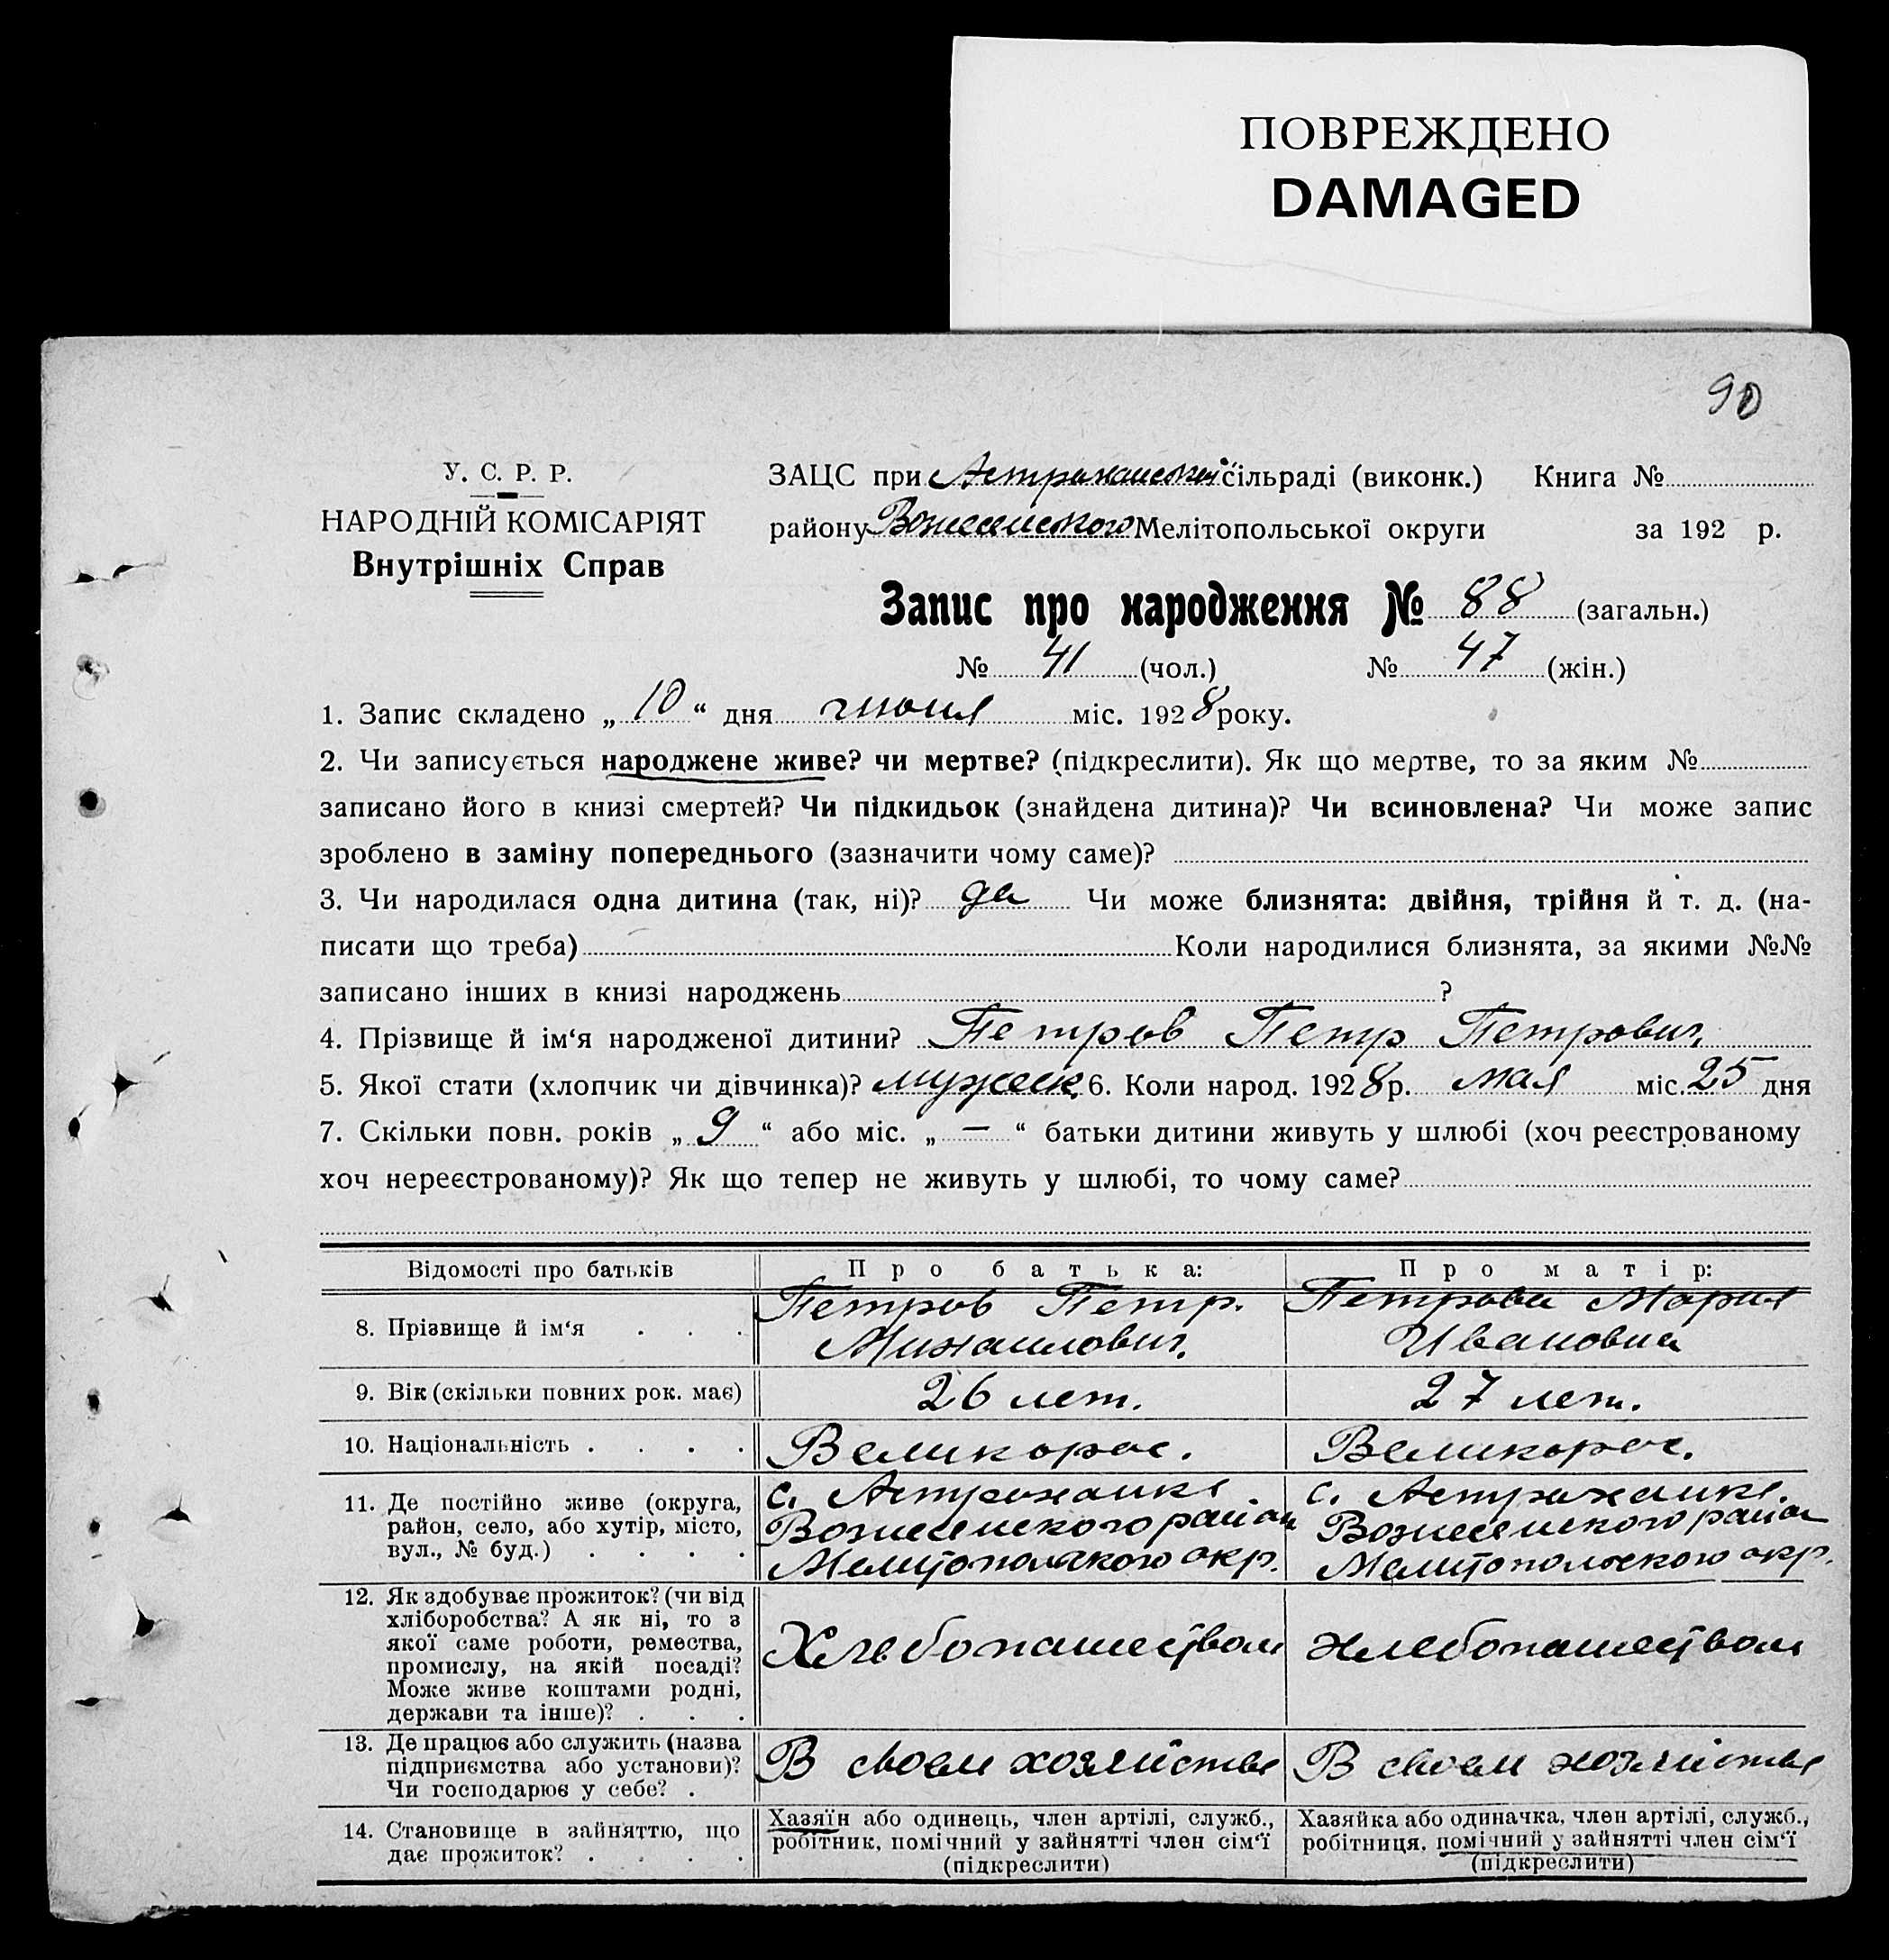 ПОВРЕЖДЕНО
DAMAGED
90
У. С. Р. Р.
НАРОДНІЙ КОМІСАРІЯТ
Внутрішніх Справ
ЗАЦС при Астраханской сільраді (виконк.) Книга №
району Вознесенского Мелітопольської округи за 192 р.
Запис про народження № 88 (загальн.)
№ 41 (чол.) № 47 (жін.)
1. Запис складено „ 10 “ дня июня міс. 1928 року.
2. Чи записується народжене живе? чи мертве? (підкреслити). Як що мертве, то за яким №
записано його в книзі смертей? Чи підкидьок (знайдена дитина)? Чи всиновлена? Чи може запис
зроблено в заміну попереднього (зазначити чому саме)?
3. Чи народилася одна дитина (так, ні)? да Чи може близнята: двійня, трійня й т. д. (на-
писати що треба) Коли народилися близнята, за якими №№
записано інших в книзі народжень ?
4. Прізвище й ім‘я народженої дитини? Петров Петр Петрович
5. Якої стати (хлопчик чи дівчинка)? мужеск. 6. Коли народ. 1928 р. мая міс. 25 дня
7. Скільки повн. років „ 9 “ або міс. „ — “ батьки дитини живуть у шлюбі (хоч реєстрованому
хоч нереєстрованому)? Як що тепер не живуть у шлюбі, то чому саме?
Відомості про батьків Про батька: Про матір:
8. Прізвище й ім‘я . . .
Петров Петр.
Михаилович.
Петрова Мария
Ивановна
9. Вік (скільки повних рок. має) 26 лет. 27 лет.
10. Національність . . . . Великорос. Великорос.
11. Де постійно живе (округа,
район, село, або хутір, місто,
вул., № буд.) . . . .
с. Астраханке
Вознесенского района
Мелитопольского окр.
с. Астраханке.
Вознесенского района
Мелитопольского окр.
12. Як здобуває прожиток? (чи від
хліборобства? А як ні, то з
якої саме роботи, ремества,
промислу, на якій посаді?
Може живе коштами родні,
держави та інше)? . . .
Хлебопашеством
хлебопашеством
13. Де працює або служить (назва
підприємства або установи)?
Чи господарює у себе? .
В своем хозяйстве
В своем хозяйстве
14. Становище в зайняттю, що
дає прожиток? . . . .
Хазяїн або одинець, член артілі, служб.,
робітник, помічний у зайнятті член сім‘ї
(підкреслити)
Хазяйка або одиначка, член артілі, служб.,
робітниця, помічний у зайнятті член сім‘ї
(підкреслити)